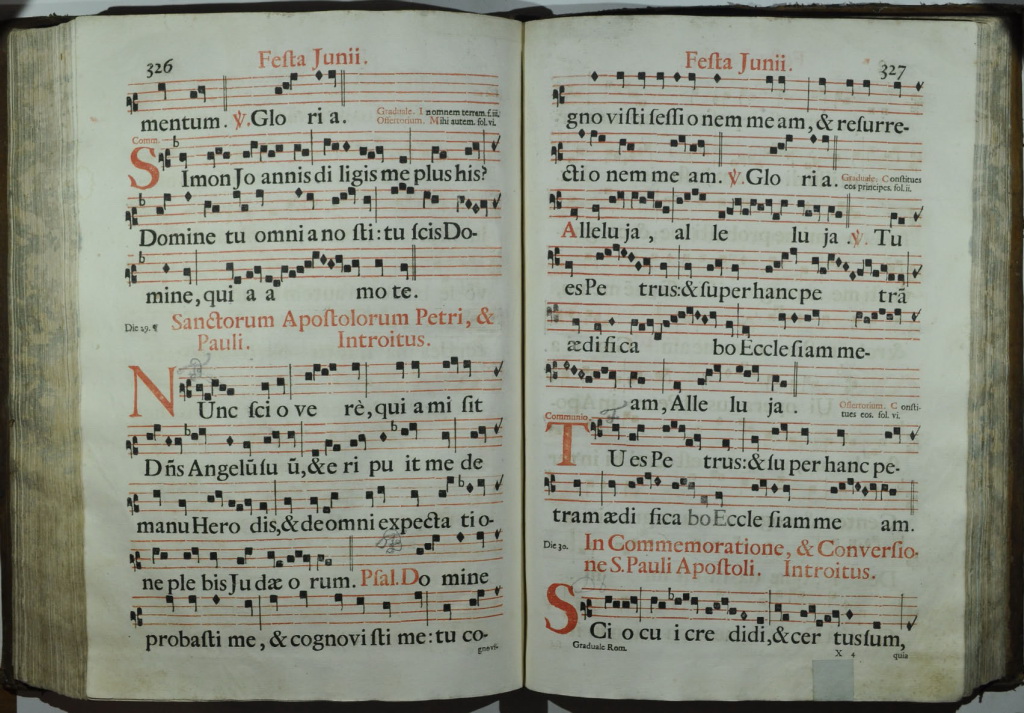 326
Festa Junii.
mentum. ℣. Glo ri a.
Graduale. In omnem terram. f. iii.
Offertorium. Mihi autem. fol. vi.
Comm.
SImon Jo annis di ligis me plus his?
Domine tu omni a no sti: tu scis Do-
mine, qui a a mo te.
Die 29. ¶ Sanctorum Apostolorum Petri, &
Pauli. Introitus.
NUnc sci o ve rè, qui a mi sit
Dñs Angelũ su ũ, & e ri pu it me de
manu Hero dis, & de omni expecta ti o-
ne ple bis Ju dæ o rum. Psal. Do mine
probasti me, & cognovi sti me: tu co-
gnovi-
Festa Junii.
327
gno visti sessi o nem me am, & resurre-
cti o nem me am. ℣. Glo ri a.
Graduale. Constitues
eos principes. fol. ii.
Allelu ja, al le lu ja. ℣. Tu
es Pe trus: & super hanc pe trã
ædi fi ca bo Eccle siam me-
am, Alle lu ja.
Offertorium. Consti-
tues eos. fol. vi.
Communio.
TU es Pe trus: & su per hanc pe-
tram ædi fica bo Eccle siam me am.
Die 30. In Commemoratione, & Conversio-
ne S. Pauli Apostoli. Introitus.
SCi o cu i cre didi, & cer tus sum,
Graduale Rom. X 4 quia